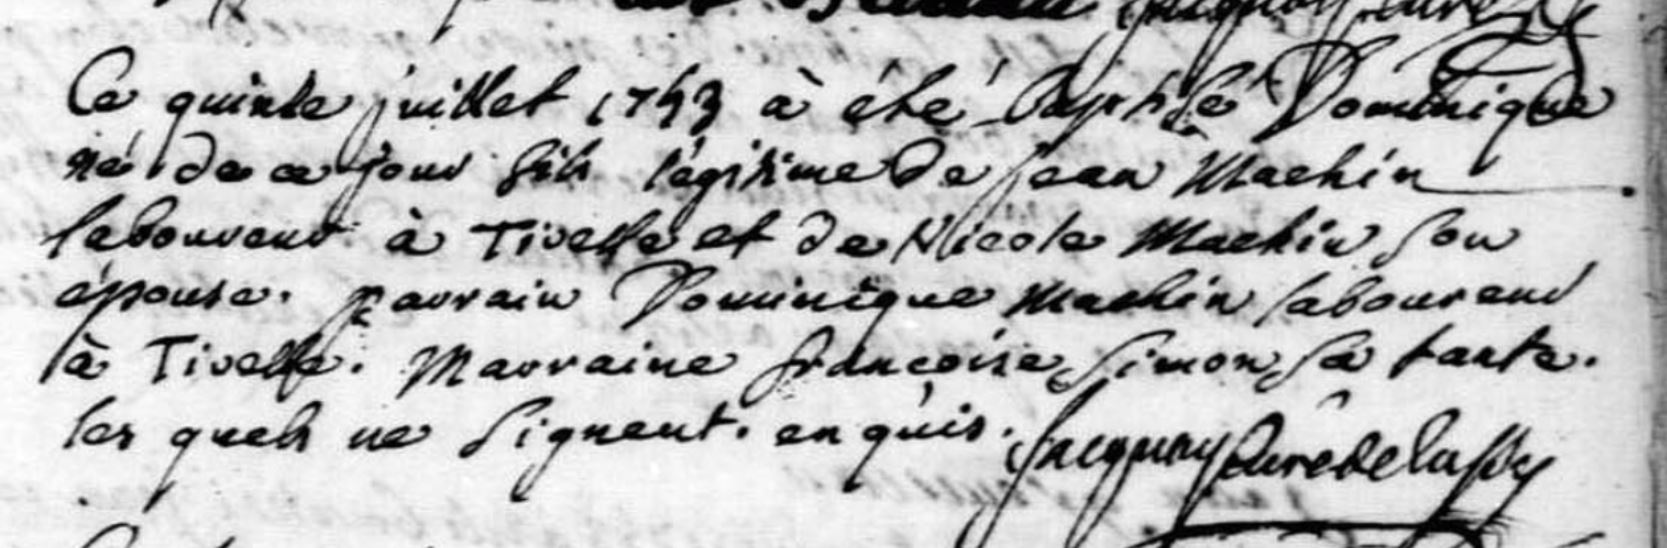 Ce quinze juillet 1743 a été baptisé Dominique
né de ce jour fils légitime de jean Machin
laboureur à Tivelle et de Nicole Machin son
épouse. parrain Dominique Machin laboureur
à Tivelle. Marraine françoise Simon sa tante.
les quels ne signent. enquis. Curé de lussy